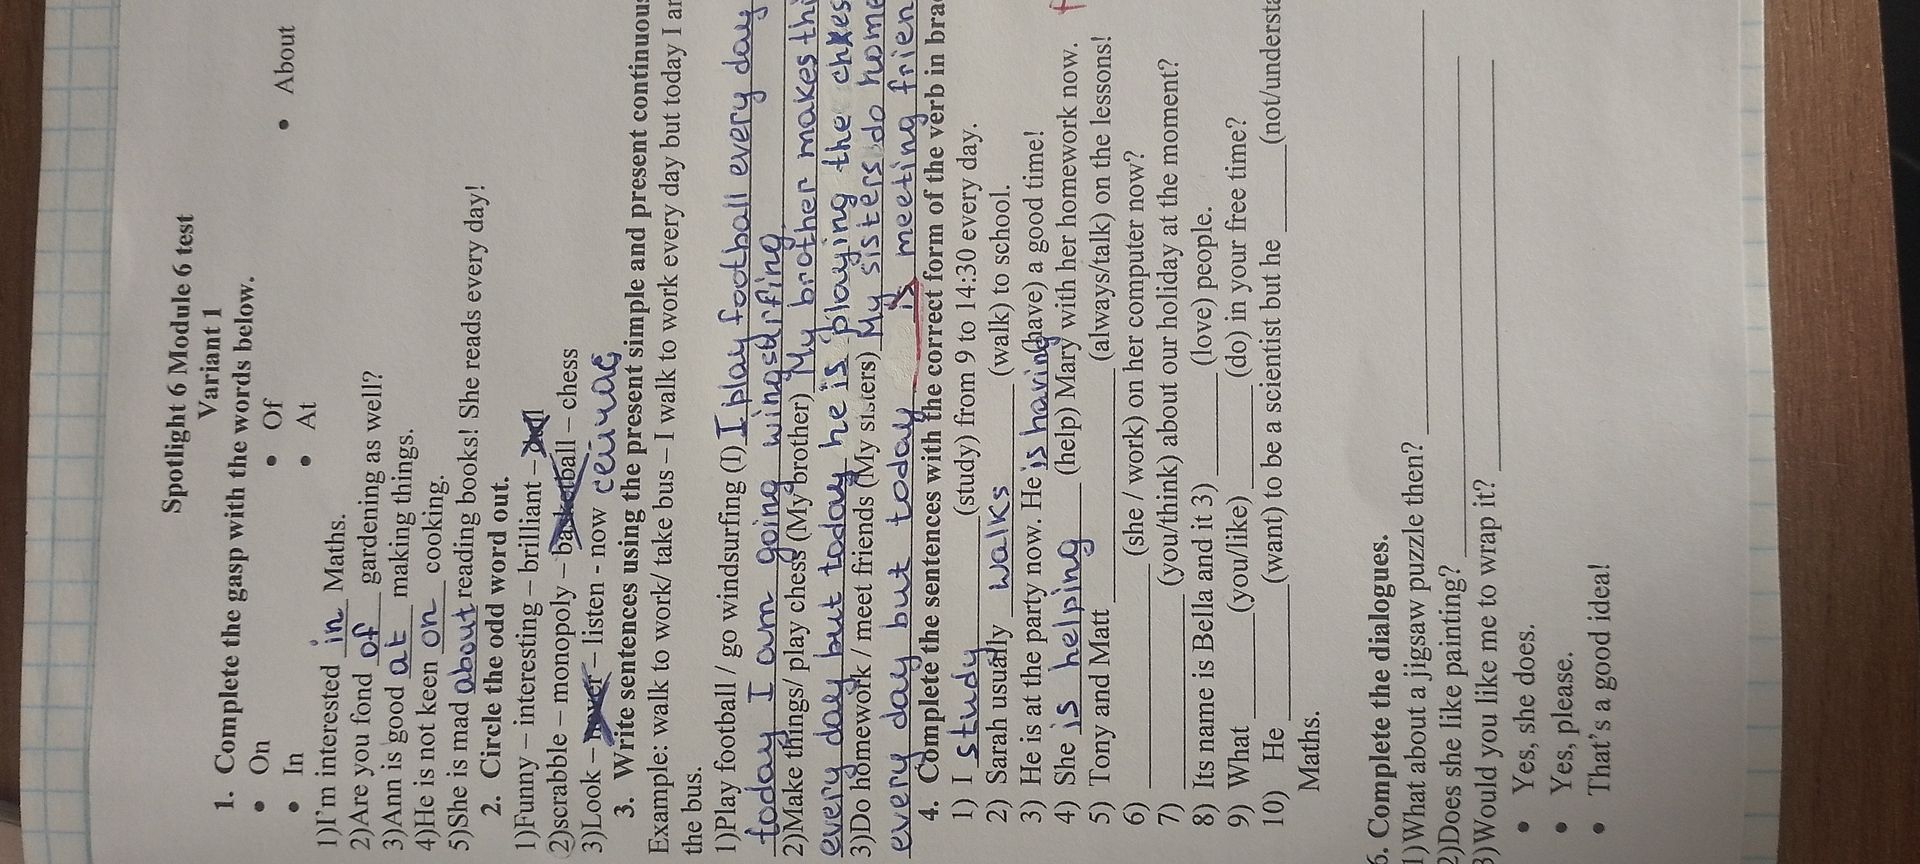 Spotlight 6 Module 6 test
Variant 1
1. Complete the gasp with the words below.
• On
• Of
• About
• In
• At
1)I'm interested in Maths.
2)Are you fond of gardening as well?
3)Ann is good at making things.
4)He is not keen on cooking.
5)She is mad about reading books! She reads every day!
2. Circle the odd word out.
1)Funny – interesting – brilliant –
2)scrabble – monopoly – basketball – chess
3)Look – – listen - now
3. Write sentences using the present simple and present continuous
Example: walk to work/ take bus – I walk to work every day but today I
the bus.
1)Play football / go windsurfing (I) I play football every day
today I am going
2)Make things/ play chess (My brother) My brother makes
every day but today he is playing the
3)Do homework / meet friends (My sisters) My sisters do
every day but today is meeting
4. Complete the sentences with the correct form of the verb in
1) I study (study) from 9 to 14:30 every day.
2) Sarah usually walks (walk) to school.
3) He is at the party now. He is having (have) a good time!
4) She is helping (help) Mary with her homework now.
5) Tony and Matt (always/talk) on the lessons!
6) (she / work) on her computer now?
7) (you/think) about our holiday at the moment?
8) Its name is Bella and it 3) (love) people.
9) What (you/like) (do) in your free time?
10) He (want) to be a scientist but he
Maths.
6. Complete the dialogues.
1)What about a jigsaw puzzle then?
2)Does she like painting?
3)Would you like me to wrap it?
• Yes, she does.
• Yes, please.
• That's a good idea!